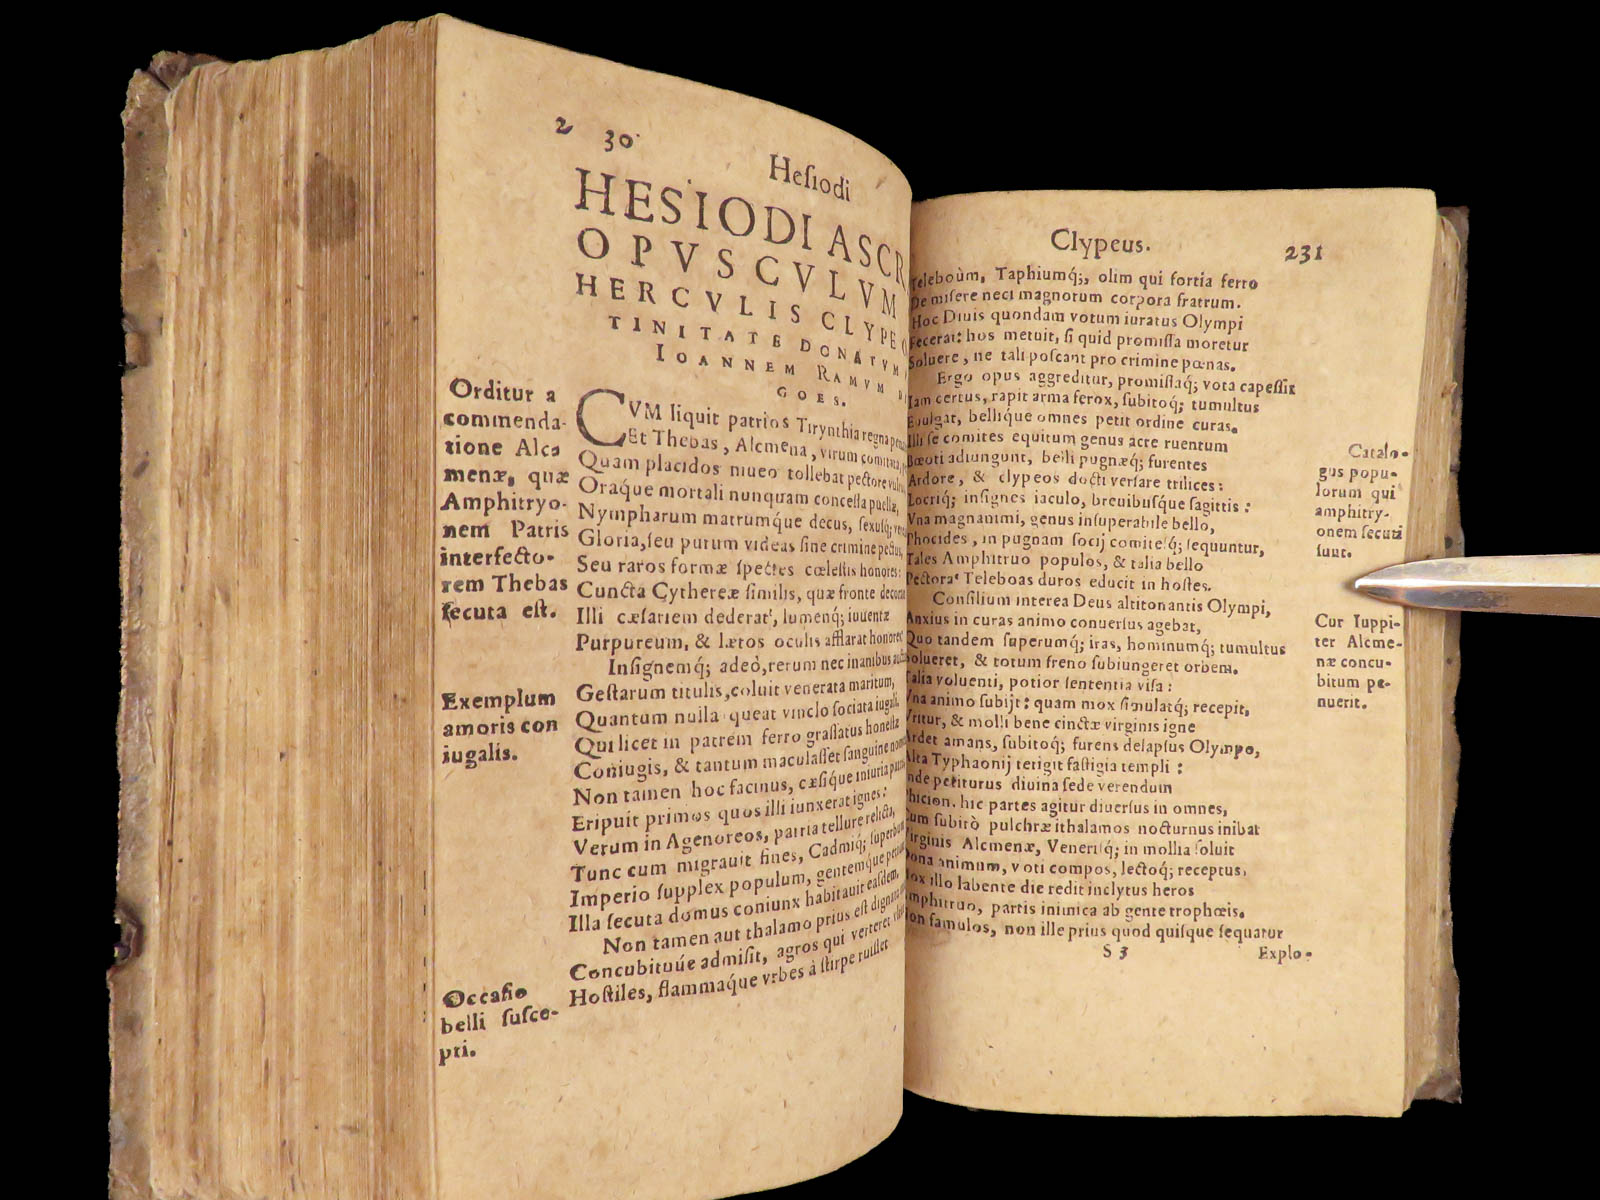 2 30
Heſiodi
HESIODI ASCR
OPVSCVLVM
HERCVLIS CLYPE
TINITATE DONATVM
IOANNEM RAMVM
GOES.
Orditur a
commenda-
tione Alca
menæ, quæ
Amphitryo-
nem Patris
interfecto-
rem Thebas
ſecuta eſt.
Exemplum
amoris con
iugalis.
Occaſio
belli ſuſce-
pti.
CVM liquit patrios Tirynthia regna
Et Thebas, Alcmena, virum comitata,
Quam placidos niueo tollebat pectore
Oraque mortali nunquam conceſſa puellæ,
Nympharum matrumq́ue decus, ſexuſq́;
Gloria, ſeu purum videas ſine crimine pectus,
Seu raros formæ ſpectes cœleſtis honores:
Cuncta Cythereæ ſimilis, quæ fronte
Illi cæſariem dederat, lumenq́; iuuentæ
Purpureum, & lætos oculis afflarat
Inſignemq́; adeò, rerum nec inanibus
Geſtarum titulis, coluit venerata maritum,
Quantum nulla queat vinclo ſociata iugali.
Qui licet in patrem ferro graſſatus honeſtæ
Coniugis, & tantum maculaſſet ſanguine
Non tamen hoc facinus, cæſique iniuria
Eripuit primos quos illi iunxerat ignes:
Verum in Agenoreos, patria tellure relicta,
Tunc cum migrauit fines, Cadmiq́;
Imperio ſupplex populum, gentemq́ue
Illa ſecuta domus coniunx habitauit eaſdem,
Non tamen aut thalamo prius eſt
Concubituúe admiſit, agros qui verteret
Hoſtiles, flammaq́ue vrbes à ſtirpe ruiſſet
Clypeus.
231
Teleboùm, Taphiumq́;, olim qui fortia ferro
De miſere neci magnorum corpora fratrum.
Hoc Diuis quondam votum iuratus Olympi
Fecerat: hos metuit, ſi quid promiſſa moretur
Soluere, ne tali poſcant pro crimine pœnas.
Ergo opus aggreditur, promiſſaq́; vota capeſſit
Iam certus, rapit arma ferox, ſubitoq́; tumultus
Euulgat, bellique omnes petit ordine curas.
Illi ſe comites equitum genus acre ruentum
Bœoti adiungunt, belli pugnæq́; furentes
Ardore, & clypeos docti verſare trilices:
Locriq́; inſignes iaculo, breuibuſque ſagittis:
Vna magnanimi, genus inſuperabile bello,
Phocides, in pugnam ſocij comiteſq́; ſequuntur,
Tales Amphitruo populos, & talia bello
Pectora Teleboas duros educit in hoſtes.
Conſilium interea Deus altitonantis Olympi,
Anxius in curas animo conuerſus agebat,
Quo tandem ſuperumq́; iras, hominumq́; tumultus
Solueret, & totum freno ſubiungeret orbem.
Talia voluenti, potior ſententia viſa:
Vna animo ſubijt: quam mox ſimulatq́; recepit,
Vritur, & molli bene cinctæ virginis igne
Ardet amans, ſubitoq́; furens delapſus Olympo,
Alta Typhaonij tetigit faſtigia templi:
Inde petiturus diuina ſede verendum
Phicion. hic partes agitur diuerſus in omnes,
Cum ſubitò pulchræ ithalamos nocturnus inibat
Virginis Alcmenæ, Veneriſq́; in mollia ſoluit
Dona animum, voti compos, lectoq́; receptus,
Mox illo labente die redit inclytus heros
Amphitruo, partis inimica ab gente trophœis.
Non famulos, non ille prius quod quiſque ſequatur
S 3
Explo-
Catalo-
gus popu-
lorum qui
amphitry-
onem ſecuti
ſunt.
Cur Iuppi-
ter Alcme-
næ concu-
bitum pe-
nuerit.